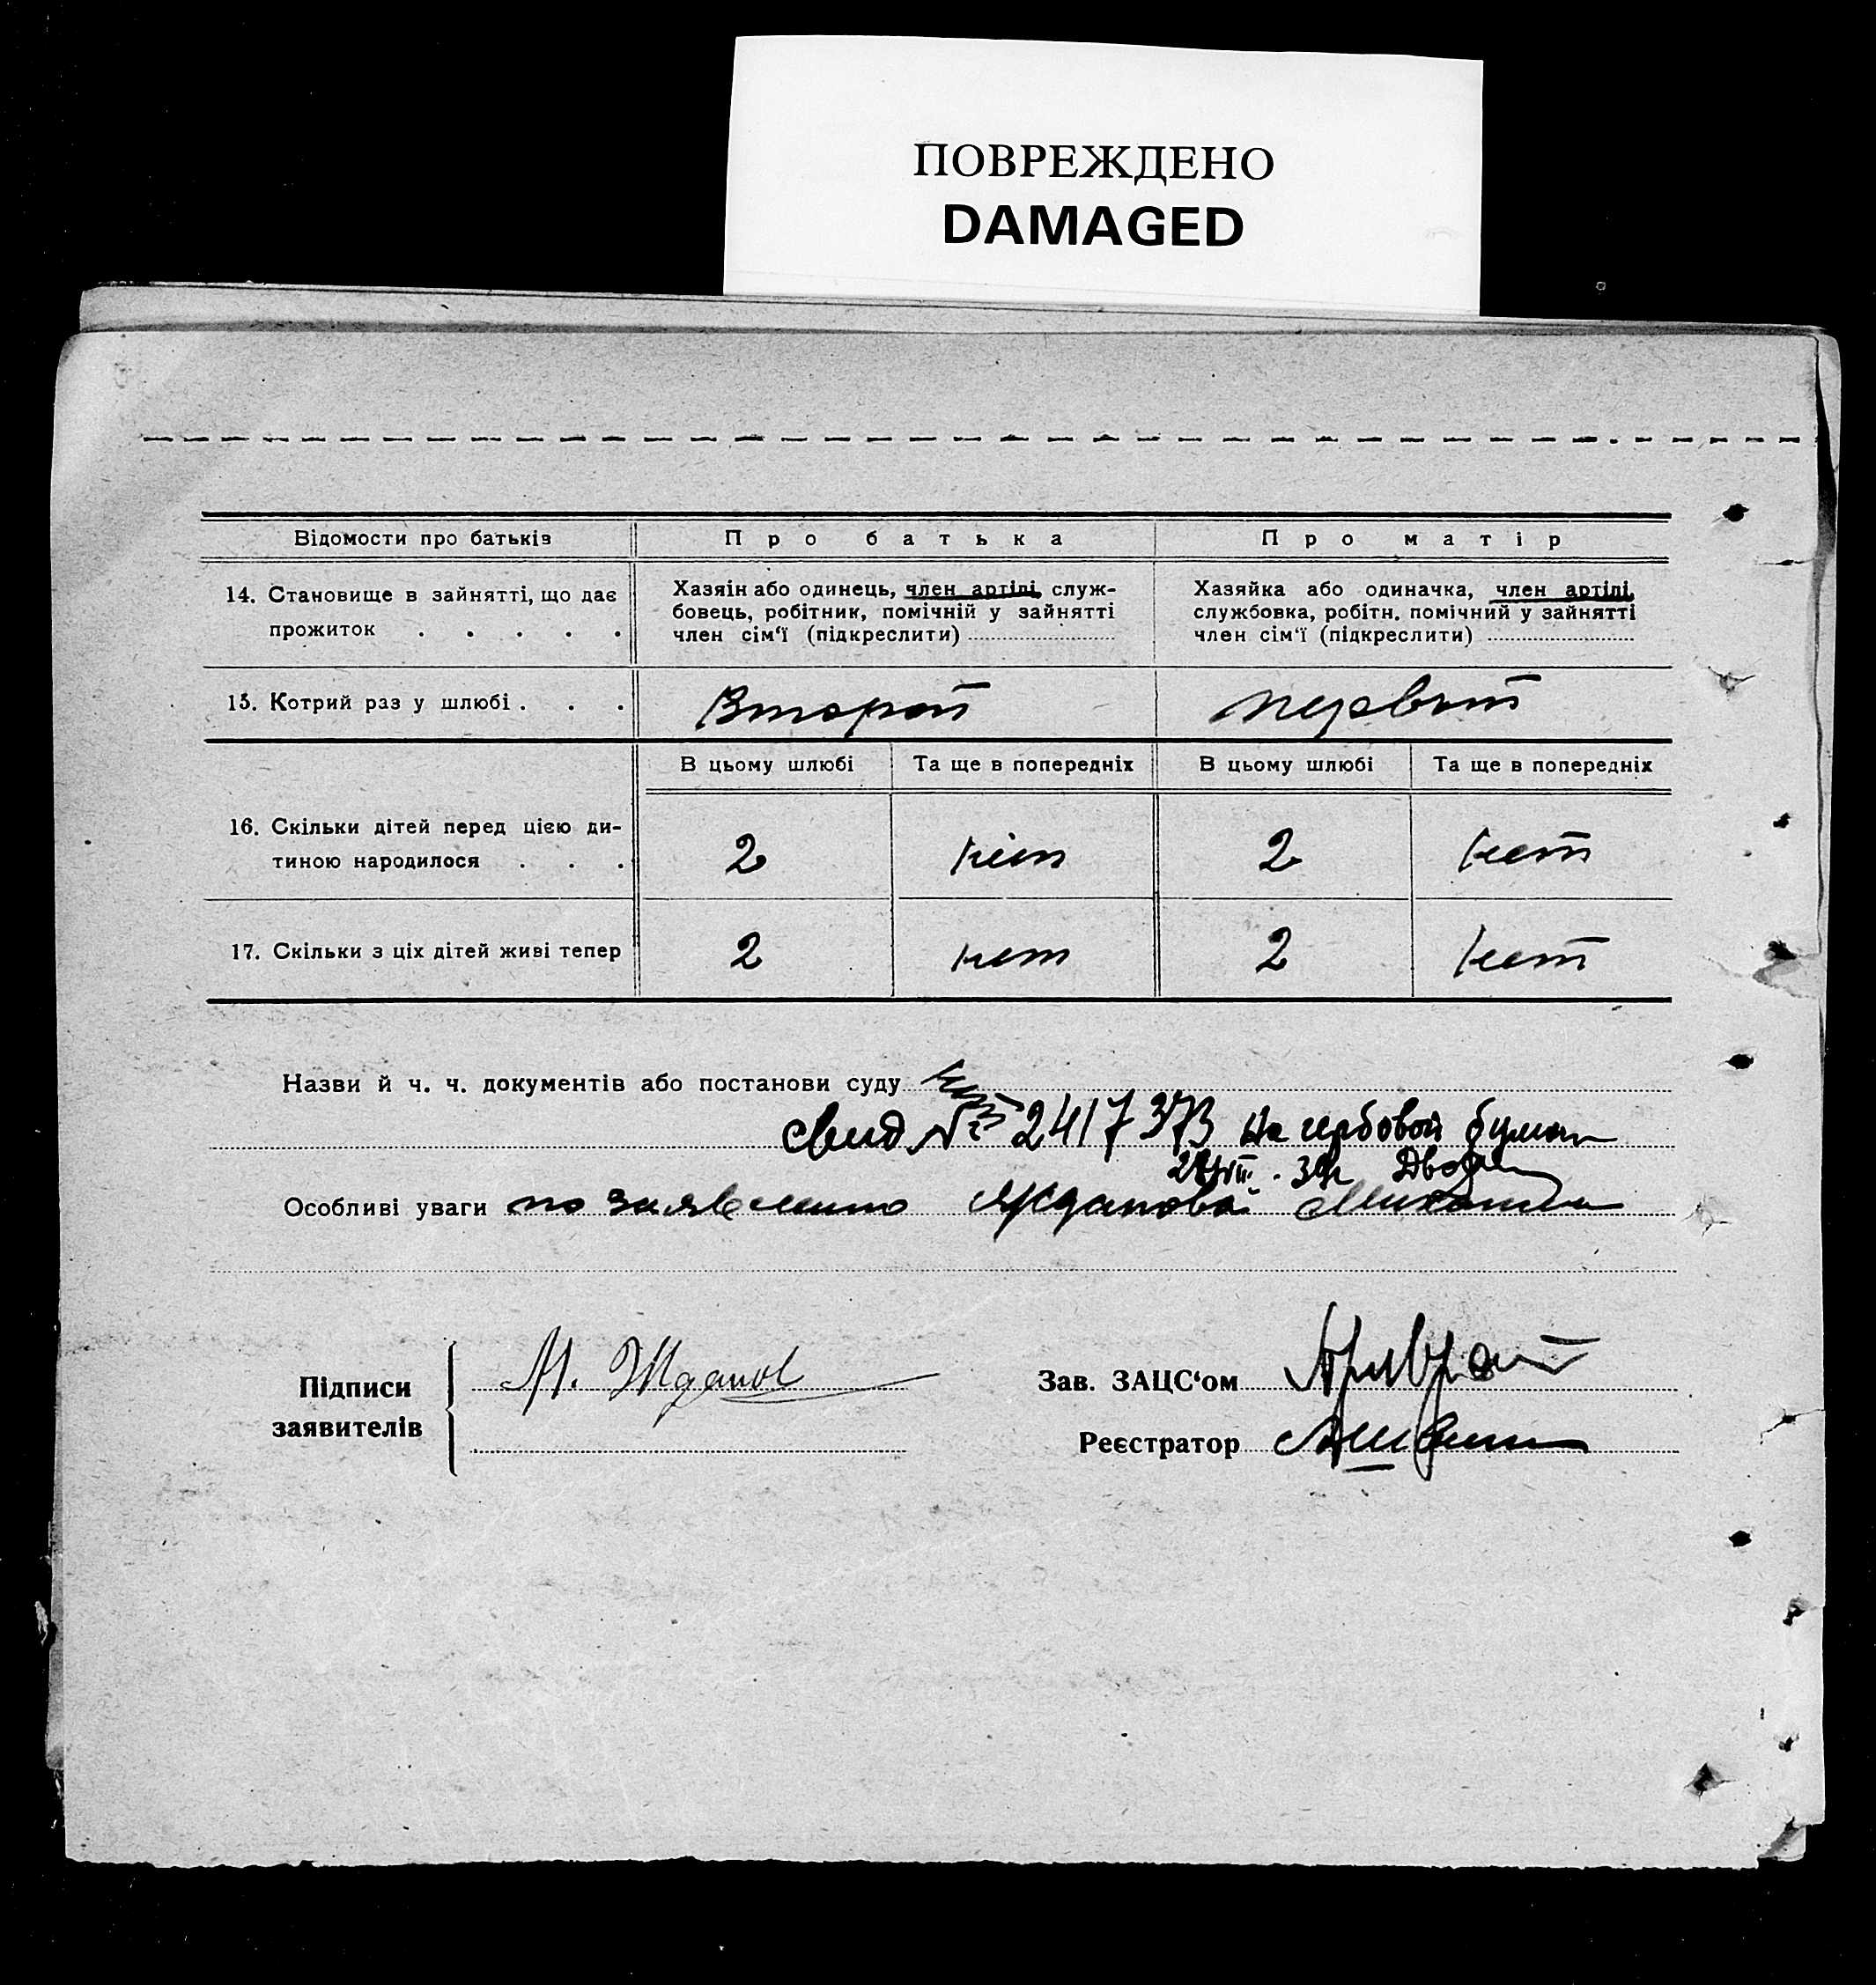 ПОВРЕЖДЕНО
DAMAGED
Відомости про батьків
Про батька
Про матір
14. Становище в зайнятті, що дає
прожиток . . . . .
Хазяін або одинець, член артілі, служ-
бовець, робітник, помічній у зайнятті
член сім‘ї (підкреслити)
Хазяйка або одиначка, член артілі,
службовка, робітн. помічний у зайнятті
член сім‘ї (підкреслити)
15. Котрий раз у шлюбі . . .
Второй
первый
В цьому шлюбі
Та ще в попередніх
В цьому шлюбі
Та ще в попередніх
16. Скільки дітей перед цією ди-
тиною народилося . . .
2
нет
2
нет
17. Скільки з ціх дітей живі тепер
2
нет
2
нет
Назви й ч. ч. документів або постанови суду
Свид № 2417373 на гербовой
Особливі уваги по заявлению Жданова
Підписи
заявителів
М. Жданов
Зав. ЗАЦС‘ом
Реєстратор